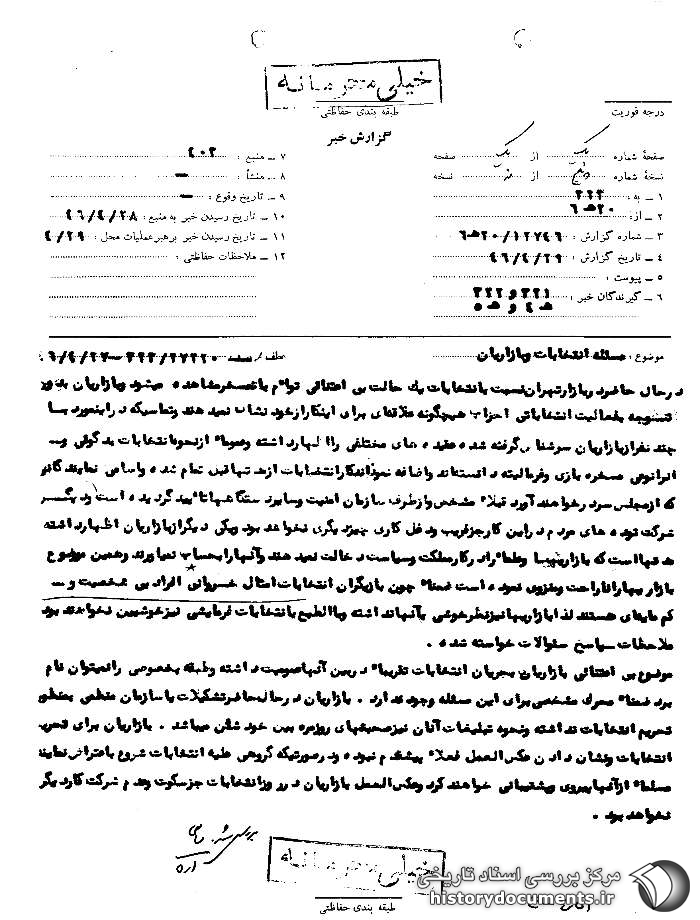 خیلی محرمانه
طبقه بندی حفاظتی
درجه فوریت
گزارش خبر
صفحهٔ شماره یک از یک صفحه
نسخهٔ شماره از نسخه
۱ ــ به : ۳۲۲
۲ ــ از : ۲۰ ﻫ ۶
۳ ــ شماره گزارش : ۱۲۷۴۶ / ۲۰ ﻫ ۶
۴ ــ تاریخ گزارش : ۴۶/۴/۲۹
۵ ــ پیوست :
۶ ــ گیرندگان خبر : ۳۲۱ و ۳۲۲
ﻫ ۴ و ﻫ ۵
۷ ــ منبع : ۴۰۲
۸ ــ منشأ : ــ
۹ ــ تاریخ وقوع : ــ
۱۰ ــ تاریخ رسیدن خبر به منبع : ۴۶/۴/۲۸
۱۱ ــ تاریخ رسیدن خبر برهبر عملیات محل : ۴/۲۹
۱۲ ــ ملاحظات حفاظتی :
موضوع : مسئله انتخابات و بازاریان
در حال حاضر در بازار تهران نسبت بانتخابات یک حالت بی اعتنائی توأم با تمسخر مشاهده میشود و بازاریان بدون
توجه بفعالیت انتخاباتی احزاب هیچگونه علاقه‌ای برای اینکار از خود نشان نمیدهند و تماسیکه در اینمورد با
چند نفر از بازاریان سرشناس گرفته شده عقیده های مختلفی را اظهار داشته و عموما از نحوه انتخابات بدگوئی و ــ
ابرا نوعی مسخره بازی و فرمالیته دانسته‌اند و اضافه نموده‌اند کار انتخابات از مدتها قبل تمام شده و اسامی نمایندگانی
که از مجلس سر در خواهند آورد قبلا مشخص و از طرف سازمان امنیت و سایر دستگاهها تایید گردیده است و دیگر
شرکت توده های مردم در این کار جز فریب و دغل کاری چیز دیگری نخواهد بود و یکی دیگر از بازاریان اظهار داشته
مدتها است که بازاریها را در کار مملکت و سیاست دخالت نمیدهند و آنها را بحساب نمیاورند و همین موضوع
بازاریها را ناراحت و منزوی نموده است ضمنا چون بازیگران انتخابات امثال خسروانی افراد بی شخصیت و ــ
کم مایه‌ای هستند لذا بازاریها نیز نظر خوشی بآنها نداشته و بالطبع بانتخابات فرمایشی نیز خوشبین نخواهند بود
ملاحظات پاسخ سئوالات خواسته شده .
موضوع بی اعتنائی بازاریان بجریان انتخابات تقریبا در بین آنها عمومیت داشته و طبقه بخصوصی را نمیتوان نام
برد ضمنا محرک مشخصی برای این مسئله وجود ندارد . بازاریان در حال حاضر تشکیلات یا سازمان منظمی بمنظور
تحریم انتخابات نداشته و نحوه تبلیغات آنان نیز صحبتهای روزمره بین خودشان میباشد . بازاریان برای تحریم
انتخابات و نشان دادن عکس‌العمل فعلا پیشقدم نبوده و در صورتیکه گروهی علیه انتخابات شروع باعتراض نمایند
مسلما از آنها پیروی و پشتیبانی خواهند کرد و عکس‌العمل بازاریان در روز انتخابات جز سکوت و عدم شرکت کار دیگری
نخواهد بود .
بررسی شد
خیلی محرمانه
طبقه بندی حفاظتی
مرکز بررسی اسناد تاریخی
historydocuments.ir